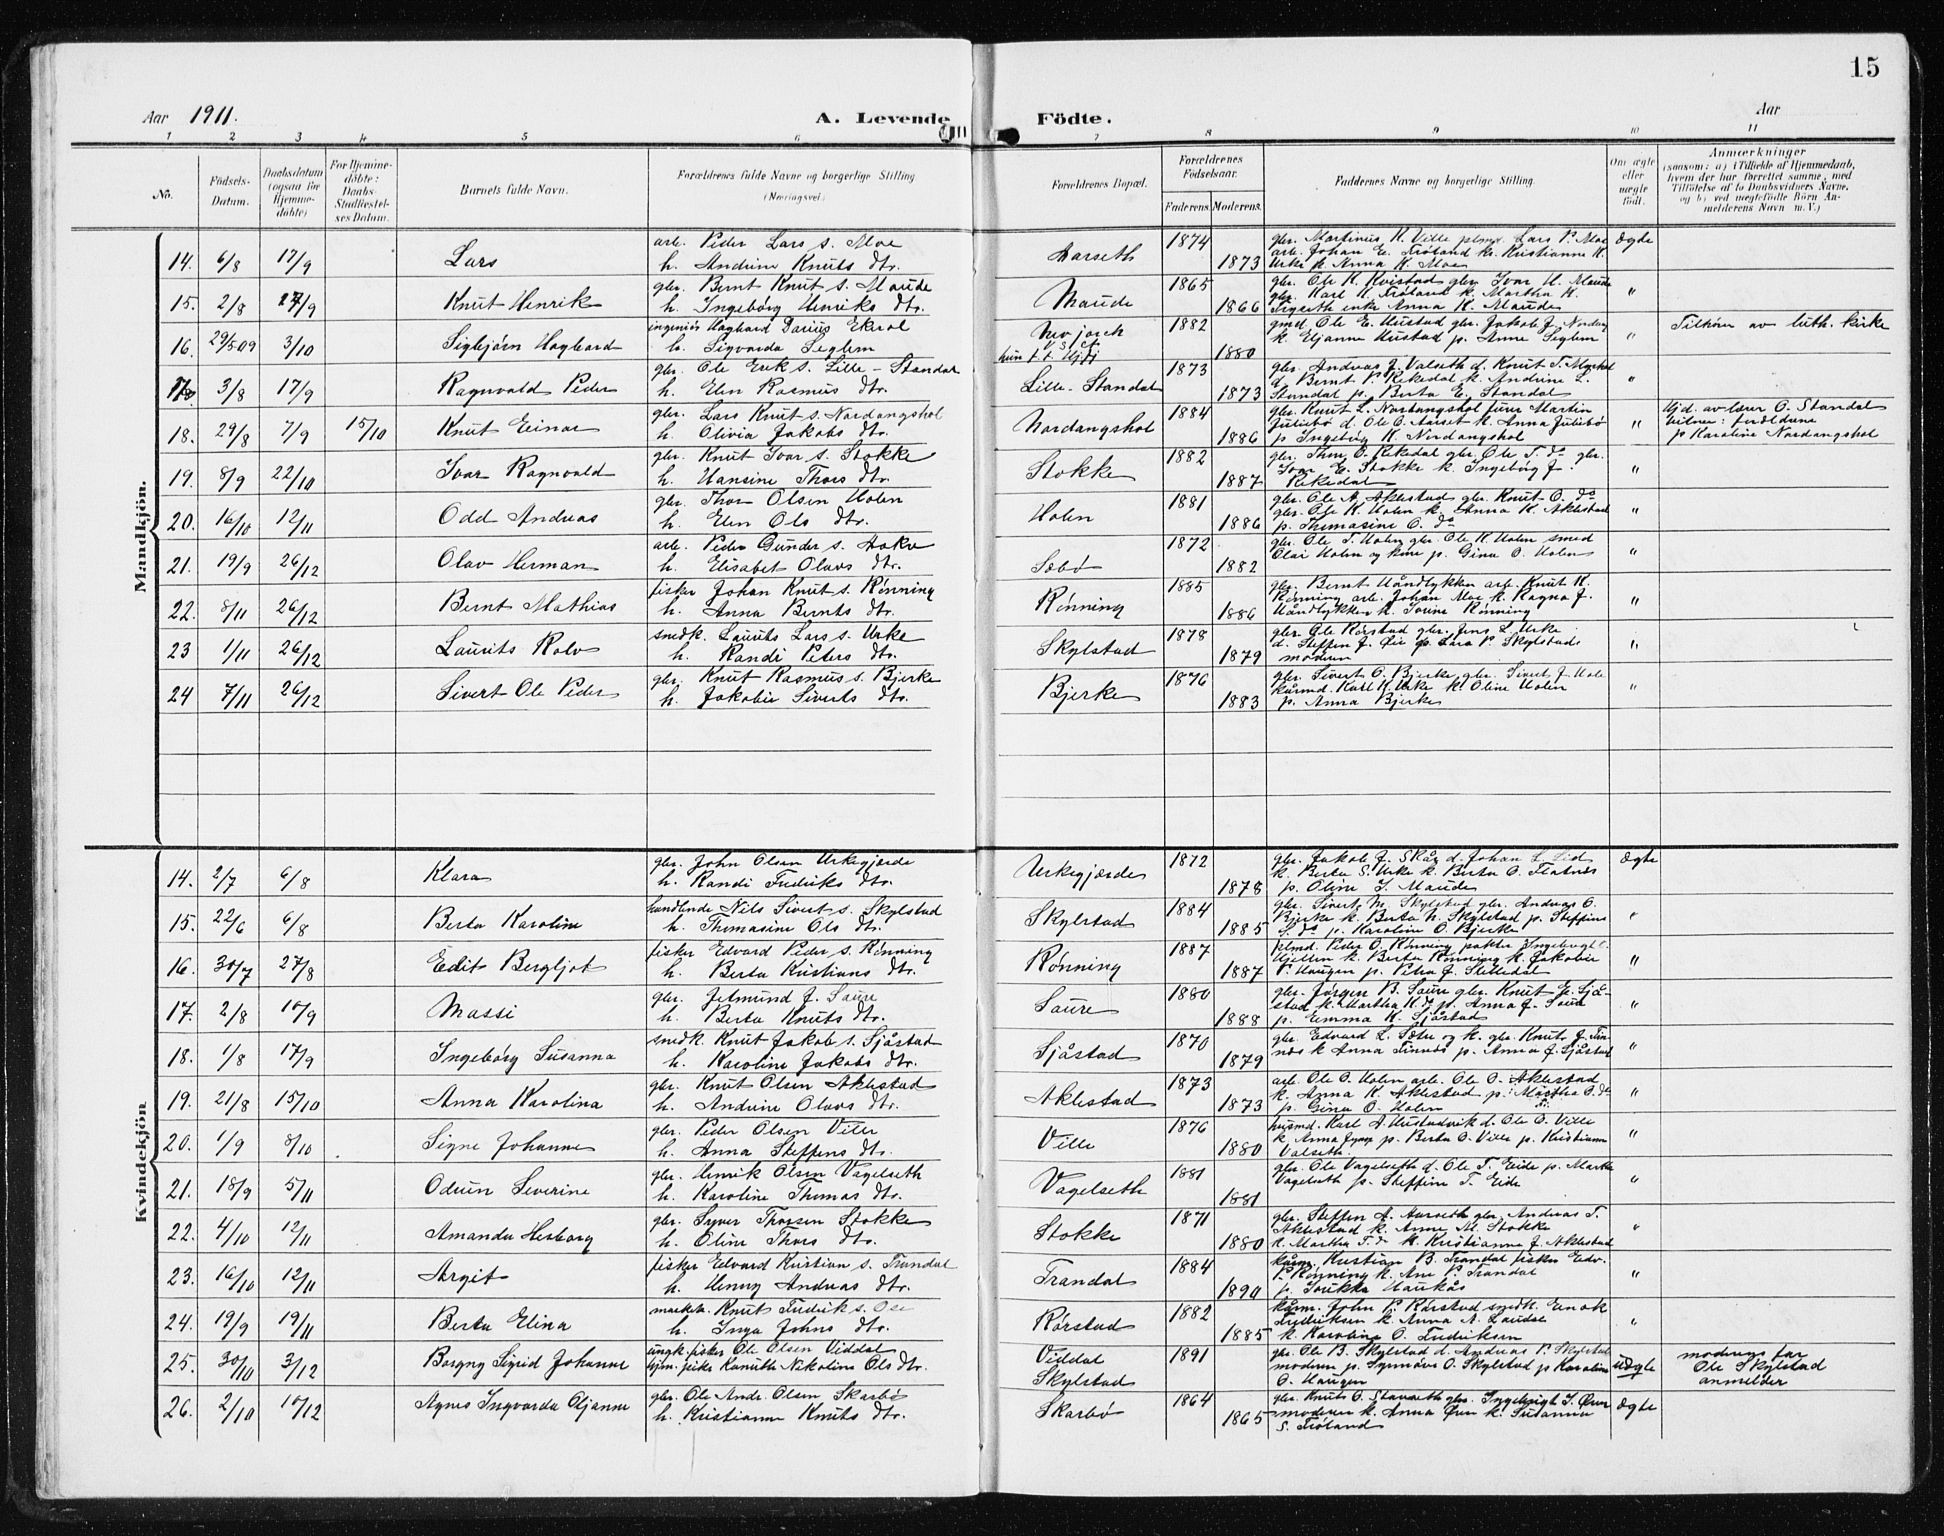 15
Aar 1911. A. Levende Födte. Aar
1 2 3 4 5 6 7 8 9 10 11
No. Födsels-Datum. Daabsdatum (ogsaa for Hjemme-døbte) For Hjemme-døbte: Daabs-Stadfæstel-ses Datum. Barnets fulde Navn. Forældrenes fulde Navne og borgerlige Stilling (Næringsvei) Forældrenes Bopæl. Forældrenes Födselsaar. Faderens. Moderens. Faddernes Navne og borgerlige Stilling. Om ægte eller uægte født. Anmærkninger (saasom: a) i Tilfælde af Hjemmedaab, hvem der har forrettet samme, med Tilføielse af to Daabsvidners Navne, og b) ved uægtefødte Börn An-melderens Navn m. V.)
Mandkjön.
14. 6/8 17/9 Lars arb. Peder Lars s. Moe Aarseth 1874 gbr. Martinus K. Ville plmd. Lars P. Moe ægte
h. Andrine Knuts dtr. 1873 arb. Johan E. Frøland k. Kristianne K.
Urke p. Anna K. Moe
15. 2/8 27/9 Knut Henrik gbr. Bernt Knut s. Maude Maude 1865 gbr. Ole K. Kvistad gbr. Ivar H. Maude "
h. Ingebørg Henriks dtr. 1866 gbr. Karl K. Frøland k. Martha K.
enke Anna K. Maude
16. 29/5 09 3/10 Sigbjørn Hagbard ingeniør Hagbard Darius Ekrol New jorch 1882 gmd. Ole E. Hustad gbr. Jakob J. " Tilhører av luth. kirke
h. Sigvarda Seglem hun f. t. Hjdj 1880 k. Eljanne Hustad p. Anne Seglem
17. 3/8 17/9 Ragnvald Peder gbr. Ole Erik s. Lille-Standal Lille-Standal 1873 gbr. Andreas J. Valseth d. Knut T. "
h. Elen Rasmus dtr. 1873 d. Bernt P. Rekedal k. Andrine L.
Standal p. Berta E. Standal
18. 29/8 7/9 15/10 Knut Einar gbr. Lars Knut s. Nordangshol Nordangshol 1884 gbr. Knut L. Nordangshol furer Martin " Hjd. av lærer O. Standal
h. Olivia Jakobs dtr. 1886 Julebø d. Ole O. Aarset k. Anna Julebø vitner: forældrene
p. Ingebrig K. Nordangshol p Karoline Nordangshol
19. 8/9 22/10 Ivar Ragnvald gbr. Knut Ivar s. Stokke Stokke 1882 gbr. Thor O. Rekedal gbr. Ole T. do gbr. "
h. Hansine Thors dtr. 1887 Ivar E. Stokke k. Ingebørg J.
Rekedal
20. 16/10 12/11 Odd Andreas gbr. Thor Olsen Holen Holen 1881 gbr. Ole A. Aklestad gbr. Knut O. do "
h. Elen Ols dtr. 1886 gbr. Ole K. Holen k. Anna K. Aklestad
p. Thomasine O. do
21. 19/9 26/12 Olav Herman arb. Peder Gunder s. Sæbø 1872 gbr. Ole T. Holen gbr. Ole K. Holen smed "
h. Elisabet Olavs dtr. 1882 Olai Holen og kone p. Gina O. Holen
22. 8/11 26/12 Bernt Mathias fisker Johan Knut s. Rønning Rønning 1885 gbr. Bernt Håndlykken arb. Knut K. "
h. Anna Bernts dtr. 1886 Rønning arb. Johan Moe k. Ragna J.
Håndlykken k. Rønning
23 1/11 26/12 Laurits Rolv snedk. Laurits Lars s. Urke Skylstad 1878 gbr. Ole Rørstad gbr. Jens L. Urke "
h. Randi Peters dtr. 1879 d. Steffen J. Øie p. Lara P. Skylstad
moderen
24 7/11 26/12 Sivert Ole Peder gbr. Knut Rasmus s. Bjerke Bjerke 1876 gbr. Sivert O. Bjerke gbr. Sivert J. Hole "
h. Jakobie Siverts dtr. 1883 kårmd. Karl K. Urke k. Oline Holen
p. Anna Bjerke
Kvindekjön
14. 2/7 6/8 Klara gbr. John Olsen Urkegjerde Urkegjerde 1872 gbr. Jakob J. Skår d. Johan L. Lid ægte
h. Randi Fredriks dtr. 1878 k. Berta S. Urke k. Berta O. Flatnes
p. Oline J. Maude
15. 22/6 6/8 Berta Karoline handlende Nils Sivert s. Skylstad Skylstad 1884 gbr. Sivert N. Skylstad gbr. Andreas O. "
h. Thomasine Ols dtr. 1885 Bjerke k. Berta N. Skylstad p. Steffine
S. do p. Karoline O. Bjerke
16. 30/7 27/8 Edit Bergljot fisker Edvard Peder s. Rønning Rønning 1887 plmd. Peder O. Rønning pakter Ingebrigt "
h. Berta Kristians dtr. 1887 Hjellen k. Berta Rønning k. Jakobie
P. Haugen p. Petra J. Stilledal
17. 2/8 10/9 Massi gbr. Jetmund J. Saure Saure 1880 gbr. Jørgen B. Saure gbr. Knut E. Sjå- "
h. Berta Knuts dtr. 1888 stad k. Martha K. do p. Anna J. Saure
p. Emma K. Sjåstad
18. 1/8 17/9 Ingebørg Susanna snedk. Knut Jakob s. Sjåstad Sjåstad 1870 gbr. Edvard L. Sæter og k. gbr. Knut J. Fin- "
h. Karoline Jakobs dtr. 1879 nes k Anna Finnes p. Anna J. Sjåstad
19. 21/8 15/10 Anna Karolina gbr. Knut Olsen Aklestad Aklestad 1873 arb. Ole O. Holen arb. Ole O. Aklestad "
h. Andrine Olavs dtr. 1873 k. Anna K. Aklestad p. Martha O. do
p. Gina O. Holen
20. 1/9 8/10 Signe Johanne gbr. Peder Olsen Ville Ville 1876 husmd. Karl A. Hustadvik d. Ole O. Ville "
h. Anna Steffens dtr. 1880 k. Anna p. Berta O. Ville p. Kristianne
Valseth
21. 18/9 5/11 Odrun Severine gbr. Henrik Olsen Vagelseth Vagelseth 1881 gbr. Ole Vagelseth d. Ole T. Eide p. Marta "
h. Karoline Thomas dtr. 1881 Vagelseth p. Steffine T. Eide
22. 4/10 12/11 Amanda Herborg gbr. Syver Thorsen Stokke Stokke 1871 gbr. Steffen A. Aarseth gbr. Andreas T. "
h. Oline Thors dtr. 1880 Aklestad k. Anne M. Stokke
k. Martha T. do k. Kristianne J. Aklestad
23. 16/10 12/11 Argit fisker Edvard Kristian s. Trandal Trandal 1884 kårm. Kristian B. Trandal fisker Edv. "
h. Henny Andreas dtr. 1890 P. Rønning k. Ane P. Trandal
p. Haukås
24. 19/9 19/11 Berta Elina Knut Fredrik s. Ose Rørstad 1882 kårm. John P. Rørstad snedk. Enok "
h. Inga Johns dtr. 1885 Fredriksen k. Anna A. Laudal
k. Karoline O. Fredriksen
25. 30/10 3/12 Borgny Sigrid Johanne ungk. fisker Ole Olsen Viddal Viddal 1891 gbr. Ole B. Skylstad d. Andreas P. Skylstad uægte moderens far
pike Kamilla Nikoline Ols dtr. Skylstad moderen p. Synnøve O. Skylstad p Karoline Ole Skylstad
O. Haugen anmelder
26. 2/10 10/12 Agnes Ingvarda Oljanne gbr. Ole Andr. Olsen Skarbø Skarbø 1864 gbr. Knut O. Stavseth gbr. Ingebrigt I. Øren ægte
h. Kristianne Knuts dtr. 1865 moderen k. Anna Øren k. Susanna
S. Frøland